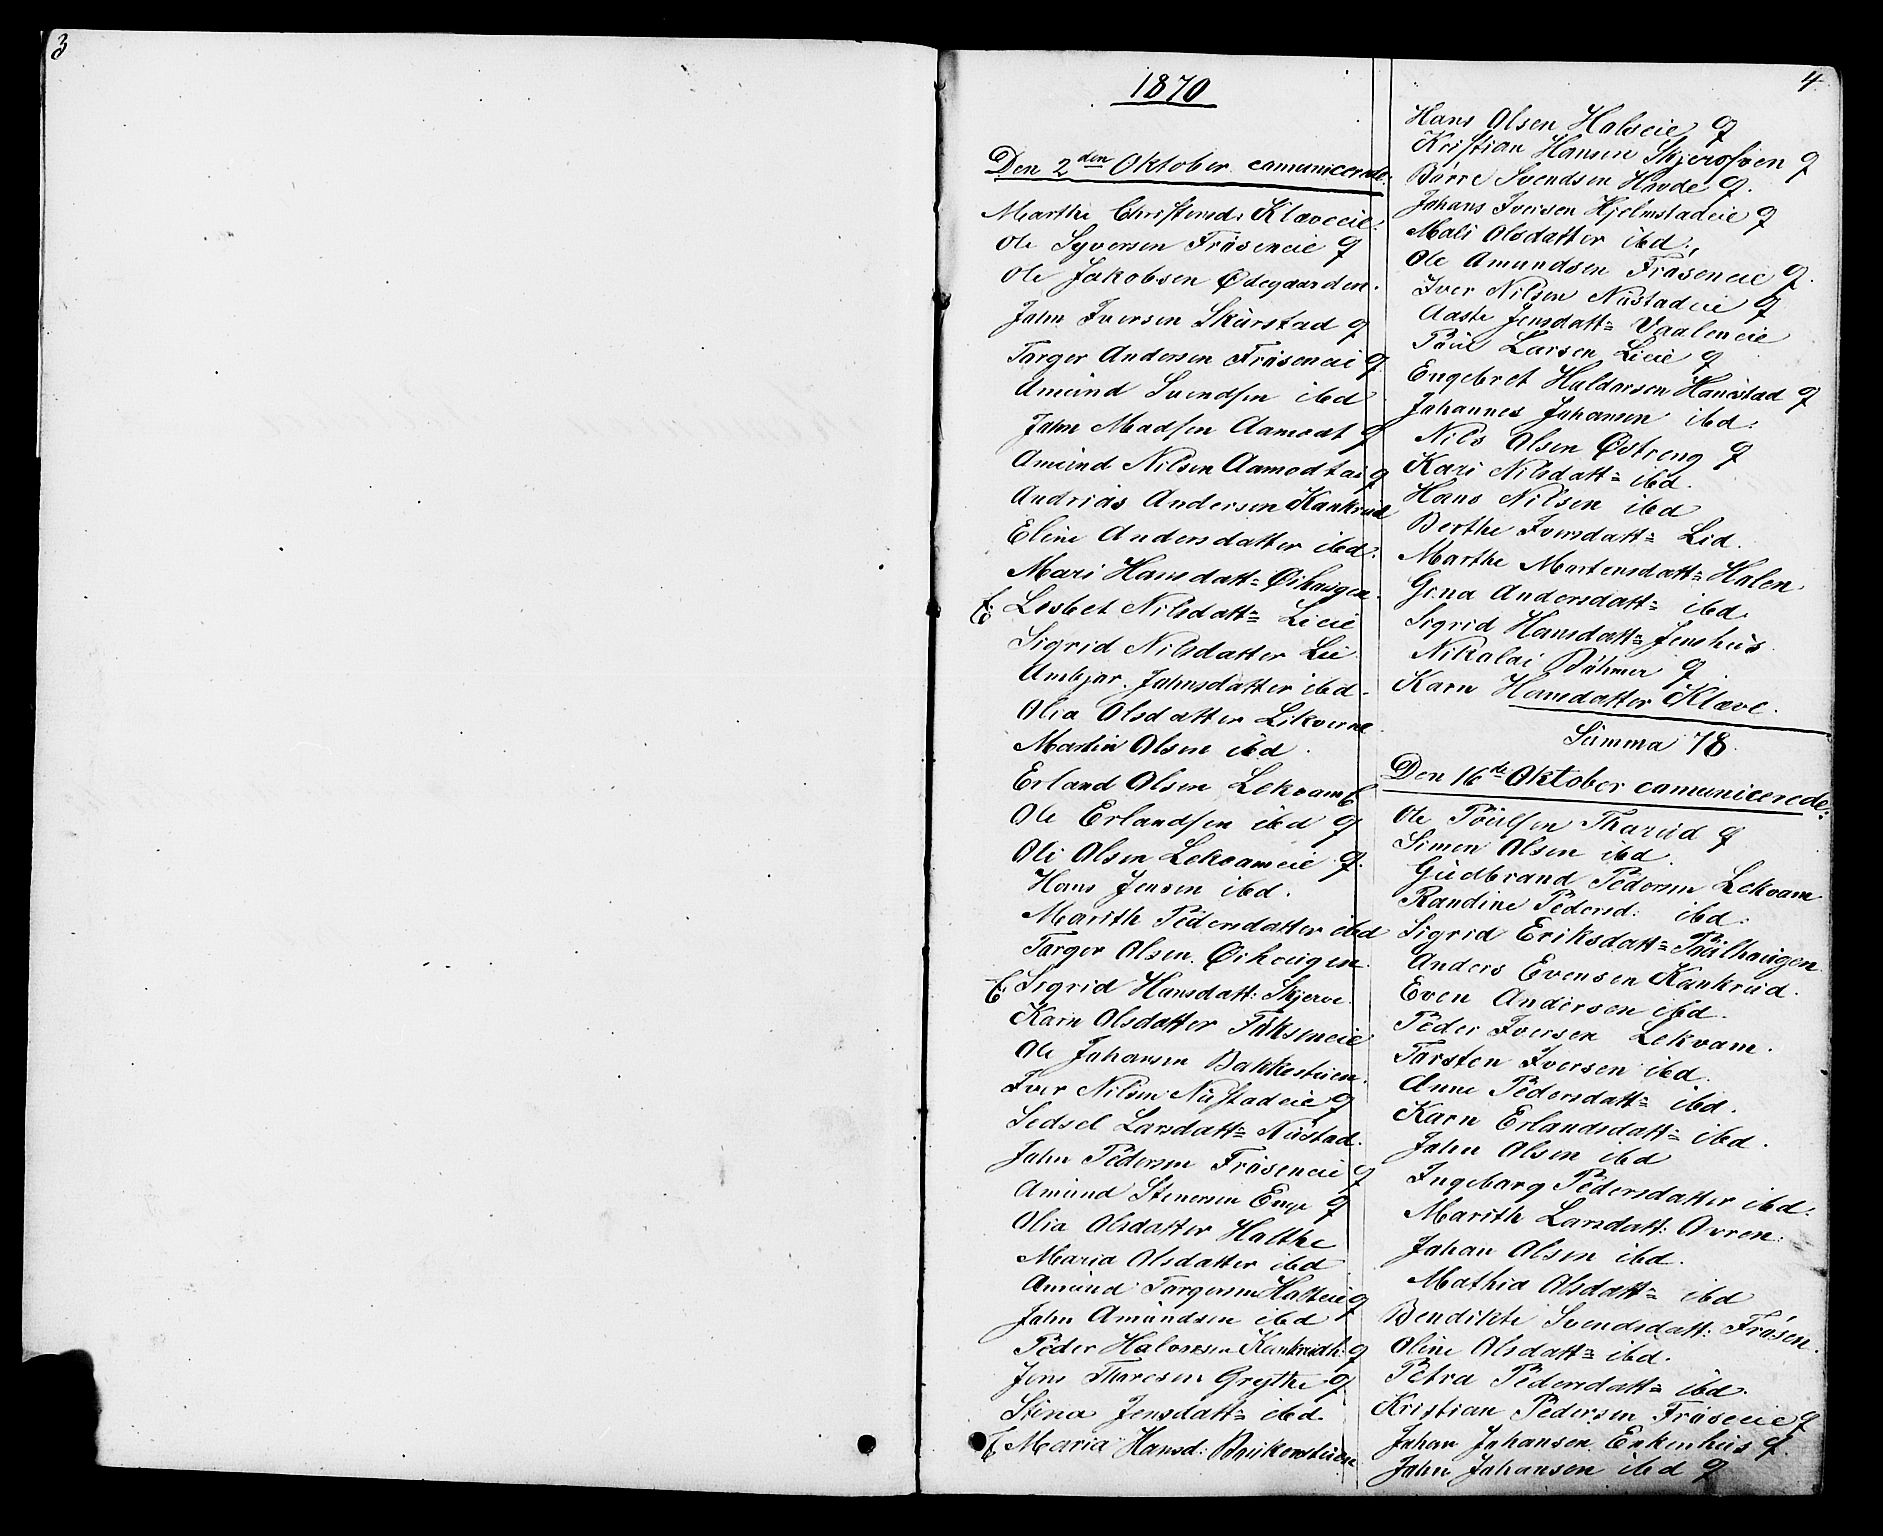 3
4
1870
Den 2den Oktober camunicerede:
Marthe Christensd: Klæveeie:
Ole Syversen Frøseneie g
Ole Jakobsen Ødegaarden.
Jahn Iversen Skurstad g
Targer Andersen Frøseneie g
Amund Svendsen ibd
Jahn Madsen Aamodt g
Amund Nilsen Aamodteie g
Andrias Andersen Kankrud
Eline Andersdatter ibd:
Mari Hansdatt= Øihaugen.
E Lisbet Nilsdatt= Lieie
Sigrid Nilsdatter Lie
Ambjør Jahnsdatter ibd.
Olia Olsdatter Likverne.
Martin Olsen ibd.
Erland Olsen Lekvam E
Ole Erlandsen ibd g
Ole Olsen Lekvameie g.
Hans Jensen ibd.
Marith Pedersdatter ibd
Targer Olsen Øihaugen.
E Sigrid Hansdatt: Skjerve.
Karn Olsdatter Føkseneie
Ole Jahansen Bakkestuen.
Iver Nilsen Nustadeie g
Sedsel Larsdatt= Nustad.
Jahn Pedersen Frøseneie g
Amund Stenersen Enge g
Olia Olsdatter Halthe
Maria Olsdatter ibd
Amund Targersen Halteie g
Jahn Amundsen ibd
Peder Halvorsen Kankrudh: g
Jens Tharesen Grythe g
Stina Jensdatt= ibd.
E Maria Hansd: Baukerstuen
Hans Olsen Halseie g
Kristian Hansen Skjerofven g
Børre Svendsen Havde g.
Jahans Iversen Hjelmstadeie g
Mali Olsdatter ibd.
Ole Amundsen Frøseneie g.
Iver Nilsen Nustadeie g
Aaste Jensdatt= Vaaleneie
Poul Larsen Lieie g
Engebret Haldorsen Hanestad g
Jahannes Jahansen ibd.
Nils Olsen Østreng g
Kari Nilsdatt= ibd.
Hans Nilsen ibd
Berthe Iversdatt= Lid.
Marthe Martensdatt= Halen
Gina Andersdatt= ibd.
Sigrid Hansdatt= Jenshus.
Nikalai Bøhmer g
Karn Hansdatter Klæve.
Summa 78.
Den 16de Oktober camunicerede:
Ole Poulsen Tharud g
Simen Olsen ibd.
Gudbrand Pedersen Lekvam
Randine Pedersd: ibd.
Sigrid Eriksdatt= Poulhaugen
Anders Evensen Kankrud.
Even Andersen ibd.
Peder Iversen Lekvam.
Tarsten Iversen ibd.
Anne Pedersdatt= ibd.
Karn Erlandsdatt= ibd.
Jahn Olsen ibd
Ingebarg Pedersdatter ibd.
Marith Larsdatt: Ovren.
Jahan Olsen ibd.
Mathia Olsdatt= ibd
Bendikte Svendsdatt: Frøsen.
Oline Olsdatt= ibd.
Petra Pedersdatt= ibd.
Kristian Pedersen Frøseeie g
Jahan Jahansen Enkenhus g.
Jahn Jahansen ibd g